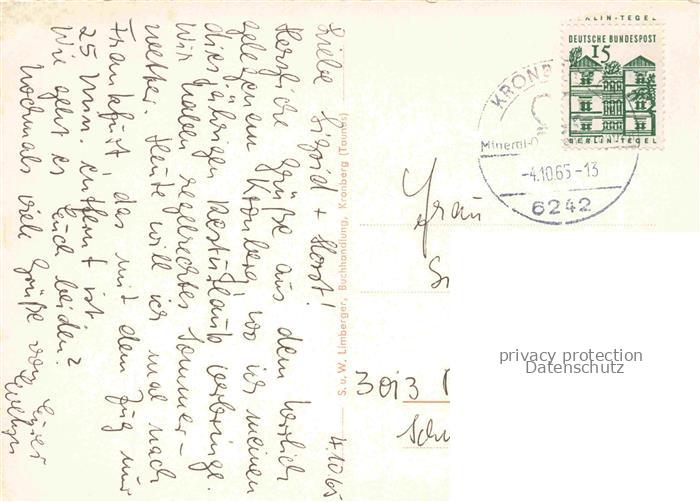 4.10.65
Liebe Sigrid + Horst!
Herzliche Grüße aus dem herrlich
gelegenem Kronberg, wo ich meinen
diesjährigen Resturlaub verbringe.
Wir haben regelrechtes Sommer-
wetter. Heute will ich mal nach
Frankfurt, das mit dem Zug nur
25 Min. entfernt ist.
Wie geht es Euch beiden?
Nochmals viele Grüße von Eurer
S. u. W. Limberger, Buchhandlung, Kronberg (Taunus)
BERLIN-TEGEL
DEUTSCHE BUNDESPOST
15
BERLIN-TEGEL
KRONB
Mineral-
-4.10.65-13
6242
Frau
3013
privacy protection
Datenschutz